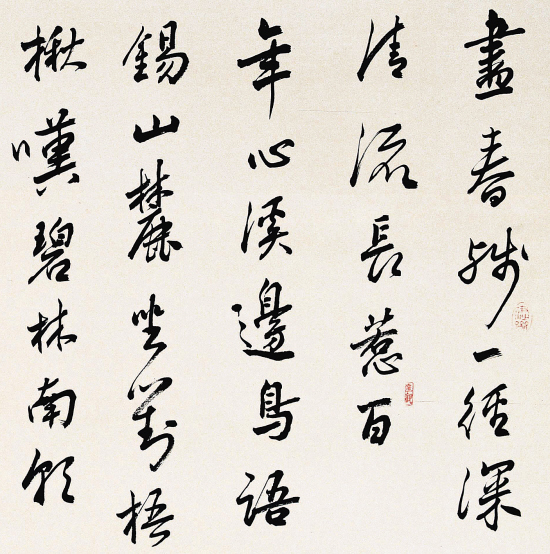 盡春殘一徑深
清流長惹百
年心溪邊鳥語
錫山麓坐對梧
楸嘆碧林南